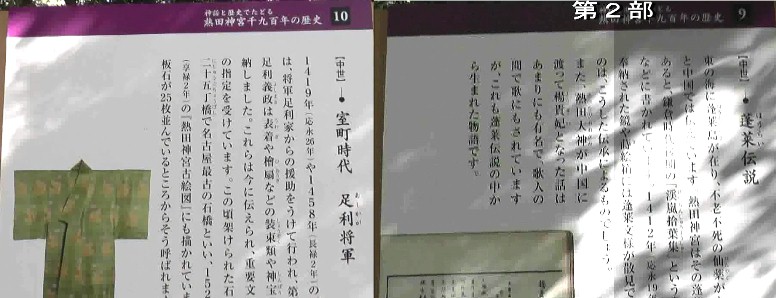 神話と歴史でたどる
熱田神宮千九百年の歴史 10
【中世】 室町時代 足利将軍
あしかが
1419年(応永26年)や1458年(長禄2年)の
は、将軍足利家からの援助をうけて行われ、第
足利義政は表着や檜扇などの装束類や神宝
納しました。これらは今に伝えられ、重要文
の指定を受けています。この頃架けられた石
二十五丁橋で名古屋最古の石橋といい、152
(享禄2年)の『熱田神宮古絵図』にも描かれていま
板石が25枚並んでいるところからそう呼ばれま
第2部
熱田神宮千九百年の歴史 9
【中世】 蓬莱伝説
ほうらい
東の海に蓬莱島が在り、不老不死の仙薬が
と中国では伝 います 熱田神宮はその蓬
あると、鎌倉時代 の『渓嵐拾葉集』という
などに書かれて 1412年(応永19
奉納された鏡や蒔絵 は蓬莱文様が散見で
のは、こうした伝 によるものでしょう。
また、熱田大神が中国に
渡って楊貴妃となった話は
あまりにも有名で、歌人の
間で歌にもされています
が、これも蓬莱伝説の中か
ら生まれた物語です。